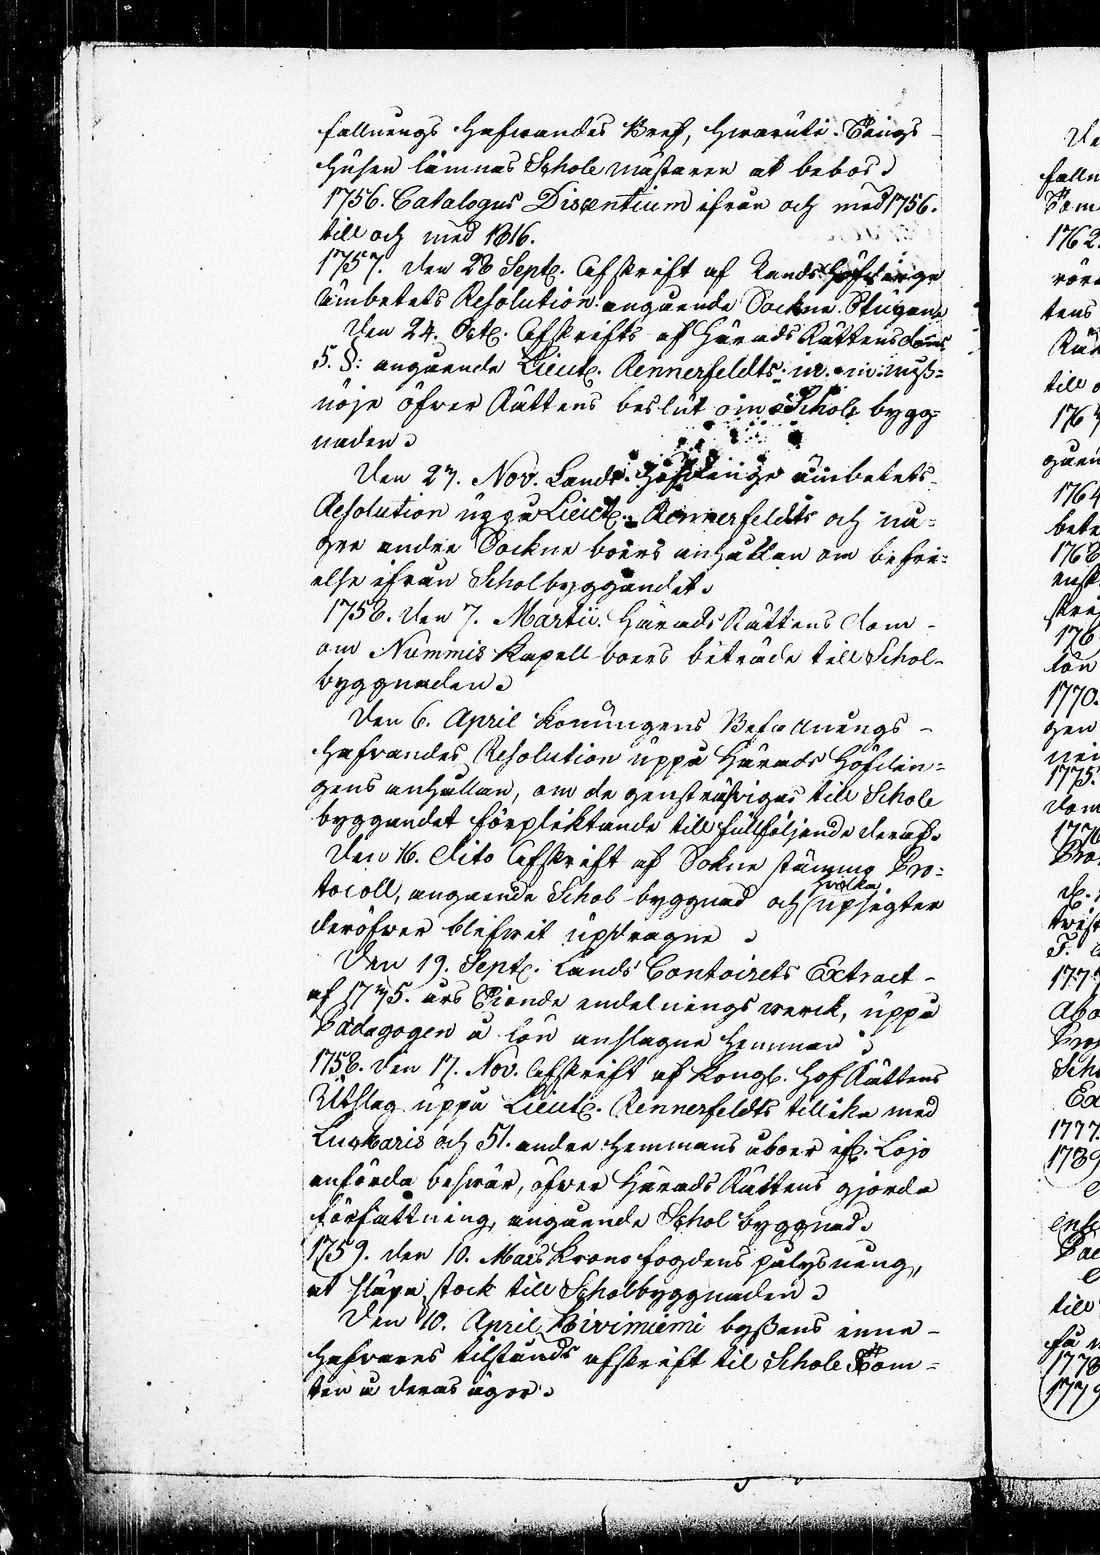 fallnings Hafwandes Bref, hwaruti Tings
Husen lämnas Scholemästaren at bebos.
1756. Catalogus Discentium ifrån och med 1756.
till och med 1816.
1757. den 28 Sept. Afskrift af Lands Höfdinge
Ämbetets Resolution angående Sockne Stugan
Den 24. Oct. Afskrift af Härads Rättens dom
5. §: angående Lieut. Rennerfeldts miß=
nöje öfwer Rättens beslut om Schole bygg=
naden.
Den 23. Nov. Lands Höfdinge ämbetets
Resolution uppå Lieut. Rennerfeldts och nå=
gre andre Sockne boers anhållan om befri=
else ifrån Scholbyggandet.
1758. den 7. Martii. Härads Rättens dom
om Nummis Kapell boers biträde till Schol-
byggnaden.
Den 6. April Konungens Befallnings-
hafvandes Resolution uppå Härads Höfdin=
gens anhållan, om de gensträfvigas till Schole
byggandet förpliktande till fullföljande deraf.
Den 16. dito Afskrift af Sokne stämmo Pro=
tocoll, angående Schol-byggnad och hvilka upsigten
deröfwer blifwit updragne.
Den 19. Sept. Lands Contoirets Extract
af 1735. års Tionde indelnings werck, uppå
Pædagogen å lön anslagne Hemman.
1758. den 17. Nov. Afskrift af Kongl. HofRättens
Utslag uppå Lieut. Rennerfeldts tillika med
Luskaris och 51. andre Hemmans åboer ifr. Lojo
anförda beswär, öfwer Härads Rättens gjorda
författning, angående Schol byggnad.
1759. den 10. Mars Krono fogdens pålysning,
at släpa stock till Scholbyggnaden.
Den 10. April Kivimiemi byßens inne-
hafvares tilstånds afskrift til Schole Tom=
ten å deras ägor.